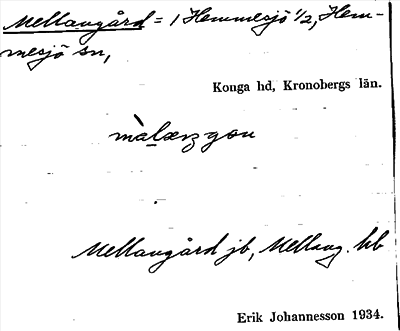 Mellangård = 1 Hemmesjö 1/2, Hem-
mesjö sn,
Konga hd, Kronobergs län.
Mellangård jb, Mellang. hb
Erik Johannesson 1934.